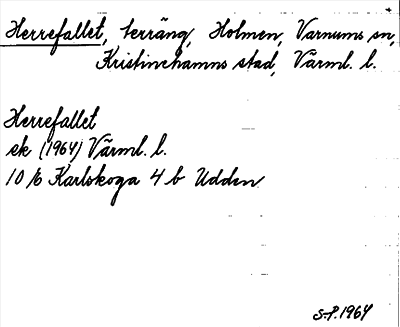 Herrefallet, terräng, Holmen, Varnums sn,
Kristinehamns stad, Värml. l.
Herrefallet
ek (1964) Värml. l.
10 E Karlskoga 4 b Udden
S.P. 1964